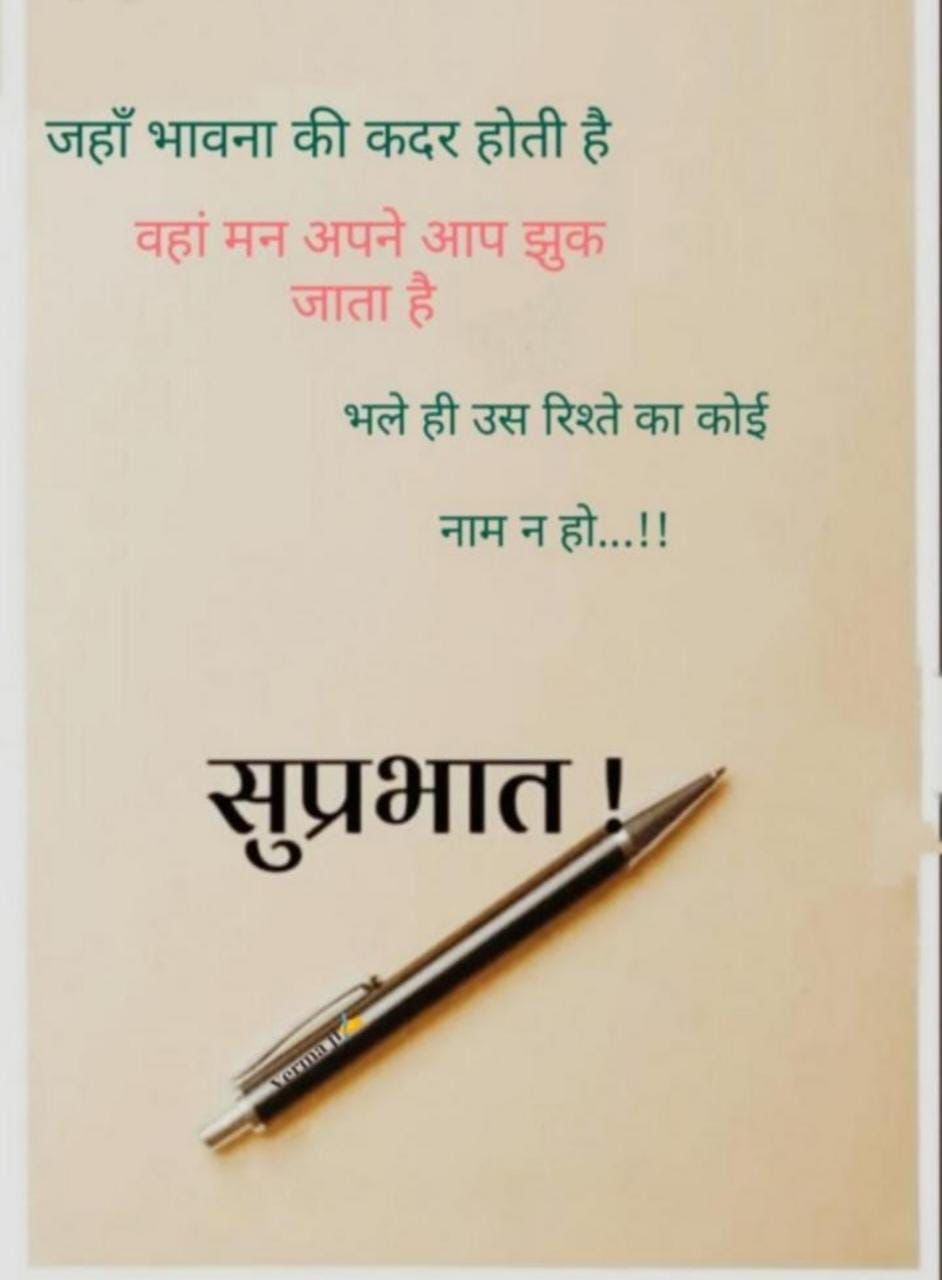 जहाँ भावना की कदर होती है
वहां मन अपने आप झुक
जाता है
भले ही उस रिश्ते का कोई
नाम न हो...!!
सुप्रभात !
Verma Ji